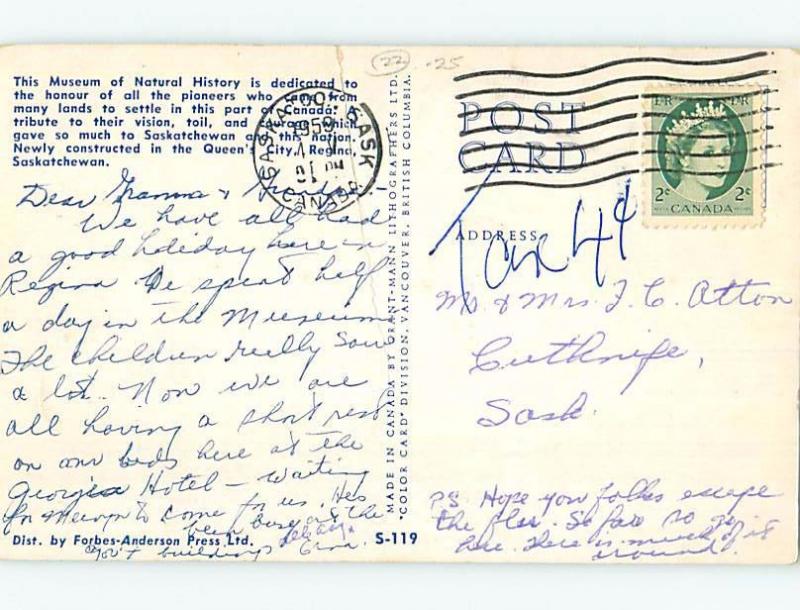 22 -25
This Museum of Natural History is dedicated to
the honour of all the pioneers who came from
many lands to settle in this part of Canada. A
tribute to their vision, toil, and which
gave so much to Saskatchewan and the nation.
Newly constructed in the Queen's City, Regina,
Saskatchewan.
SASKATOON SASK
1959
PM
CANADA
Dear Gramma &
We have all had
a good holiday here in
Regina We spent half
a day in the Museum
The children really saw
a lot. Now we are
all having a short rest
on our beds here at the
Georgia Hotel – waiting
for Mervyn to come for us. Hes
been busy at the
Gov't buildings
Dist. by Forbes-Anderson Press Ltd. S-119
MADE IN CANADA BY GRANT-MANN LITHOGRAPHERS LTD.
"COLOR CARD" DIVISION, VANCOUVER, BRITISH COLUMBIA.
POST
CARD
ER ER
2¢ CANADA 2¢
ADDRESS
Mr & Mrs. F. C. Atton
Cutknife,
Sask.
PS. Hope you folks escape
the flu. So far so
here. There is much of it
around.